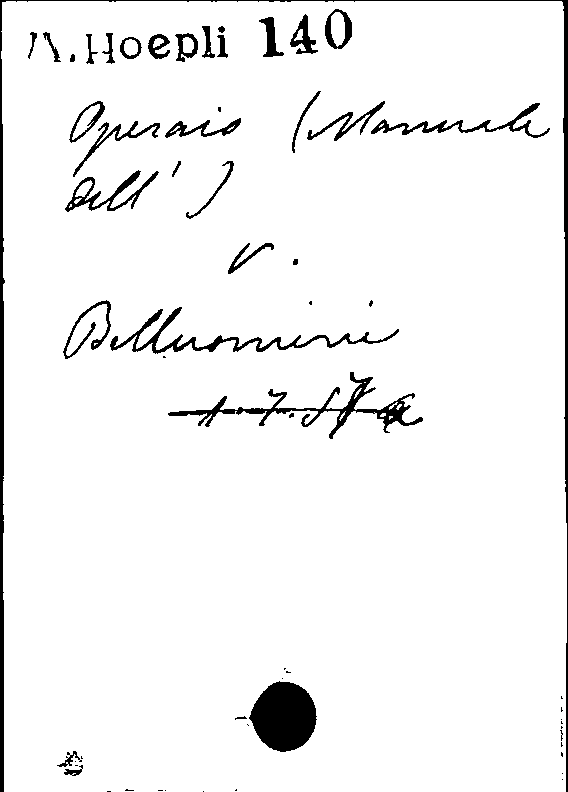 M. Hoepli 140
Operaio (Manuale
dell')
v.
Belluomini